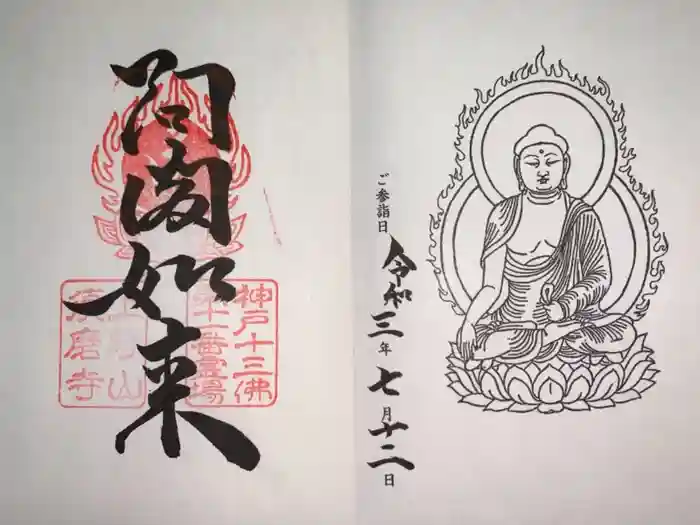 阿閦如来
神戸十三佛
第十一番霊場
上野山
須磨寺
ご参詣日
令和三年七月十二日